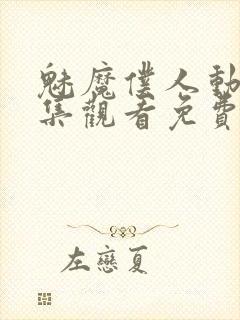 魅魔僕人動
集觀看免費
左戀夏